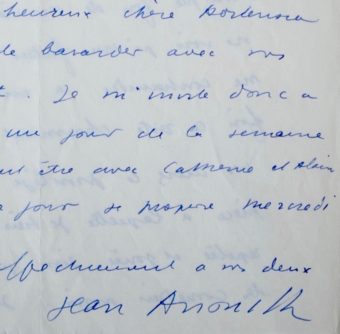 heureux chère Hortensia
de bavarder avec vos
. Je m'invite donc a
un jour de la semaine
être avec Catherine et Alain
jour je propose mercredi
affectueusement a vos deux
Jean Anouilh